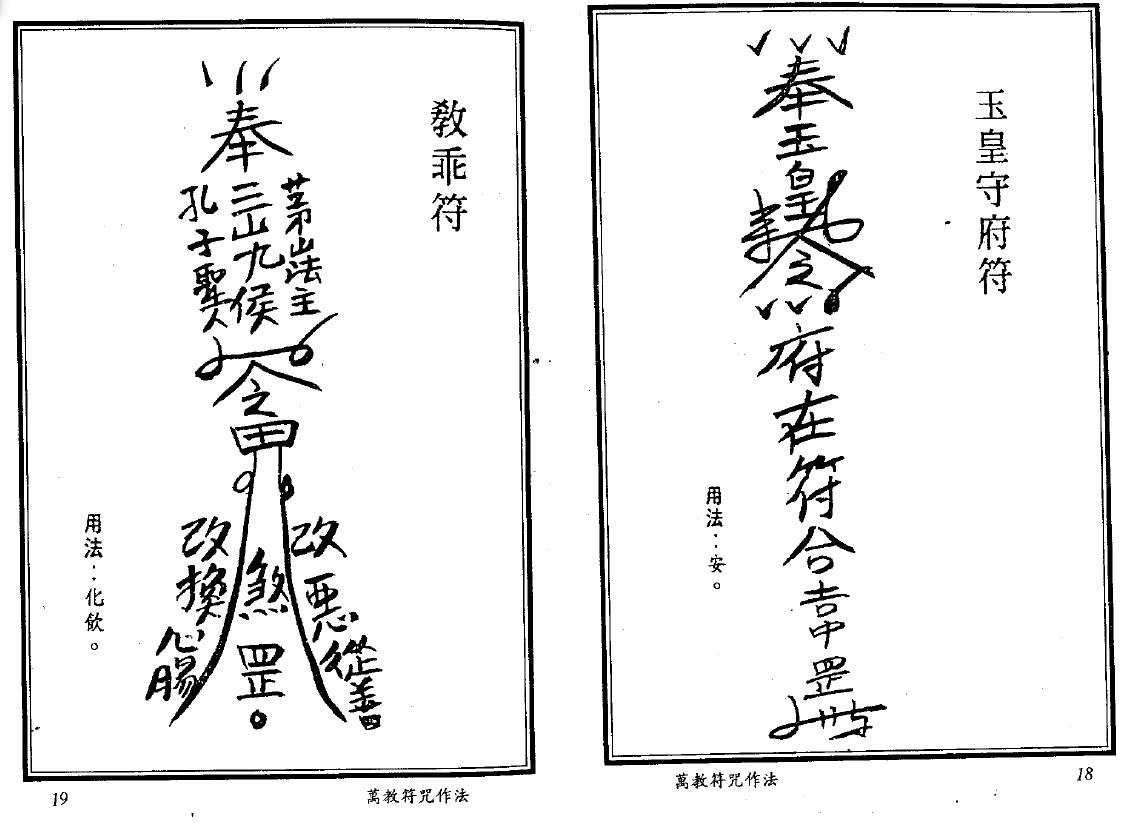 玉皇守府符
奉玉皇
之
府在符合
罡
用法：安。
萬教符咒作法
18
教乖符
奉
茅山法主
三山九侯
孔子聖人
之
改惡從善
煞罡
改換心腸
用法：化飲。
萬教符咒作法
19